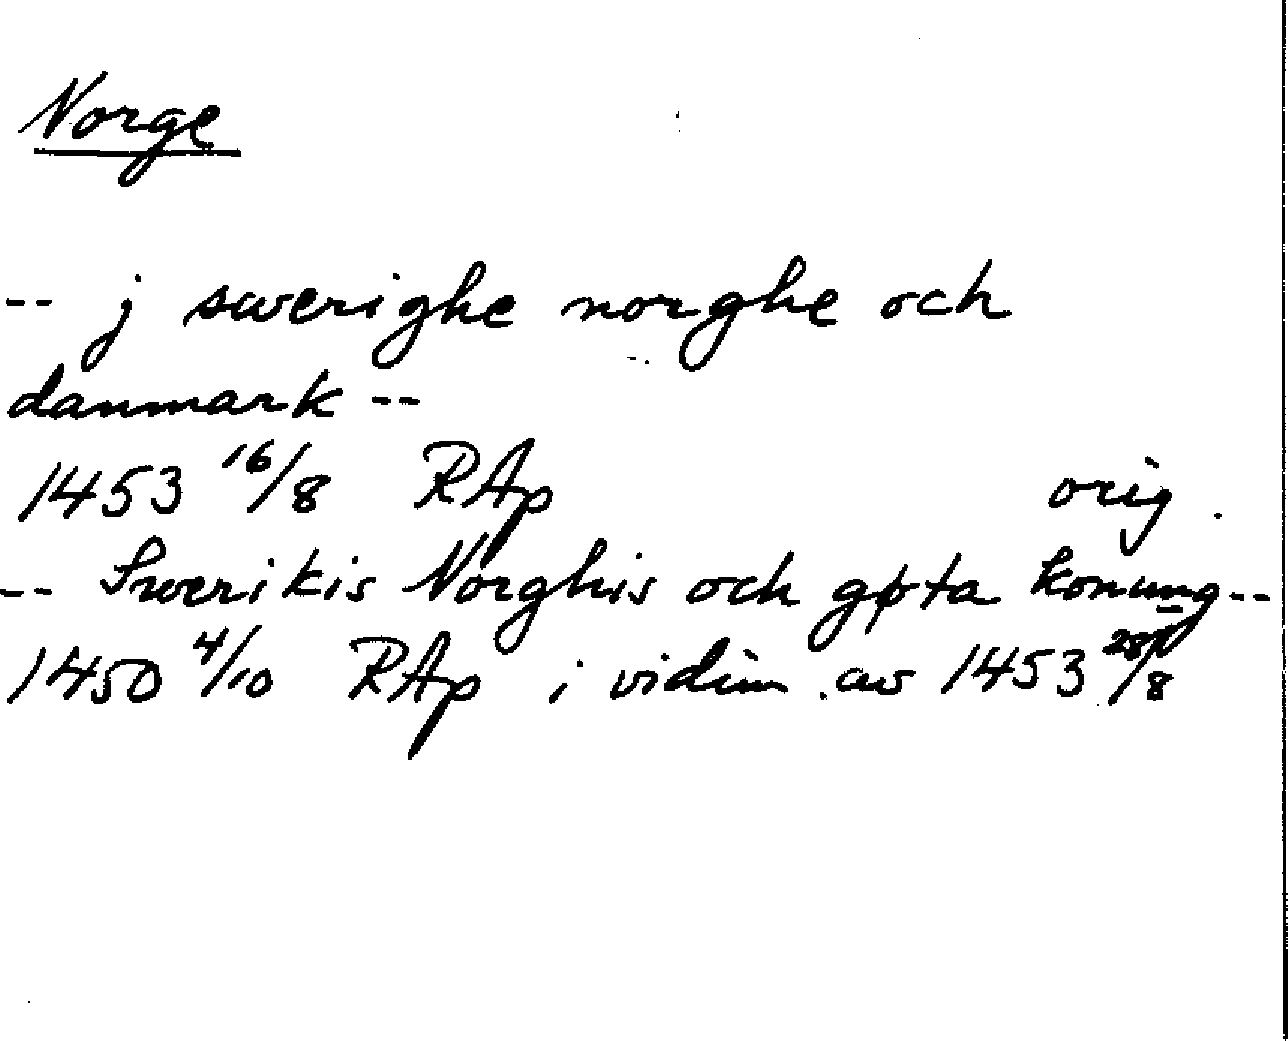 Norge
-- j swerighe norghe och
danmark --
1453 16/8 RAp orig.
-- Swerikis Norghis och gøta konung --
1450 4/10 RAp i vidim av 1453 28/8